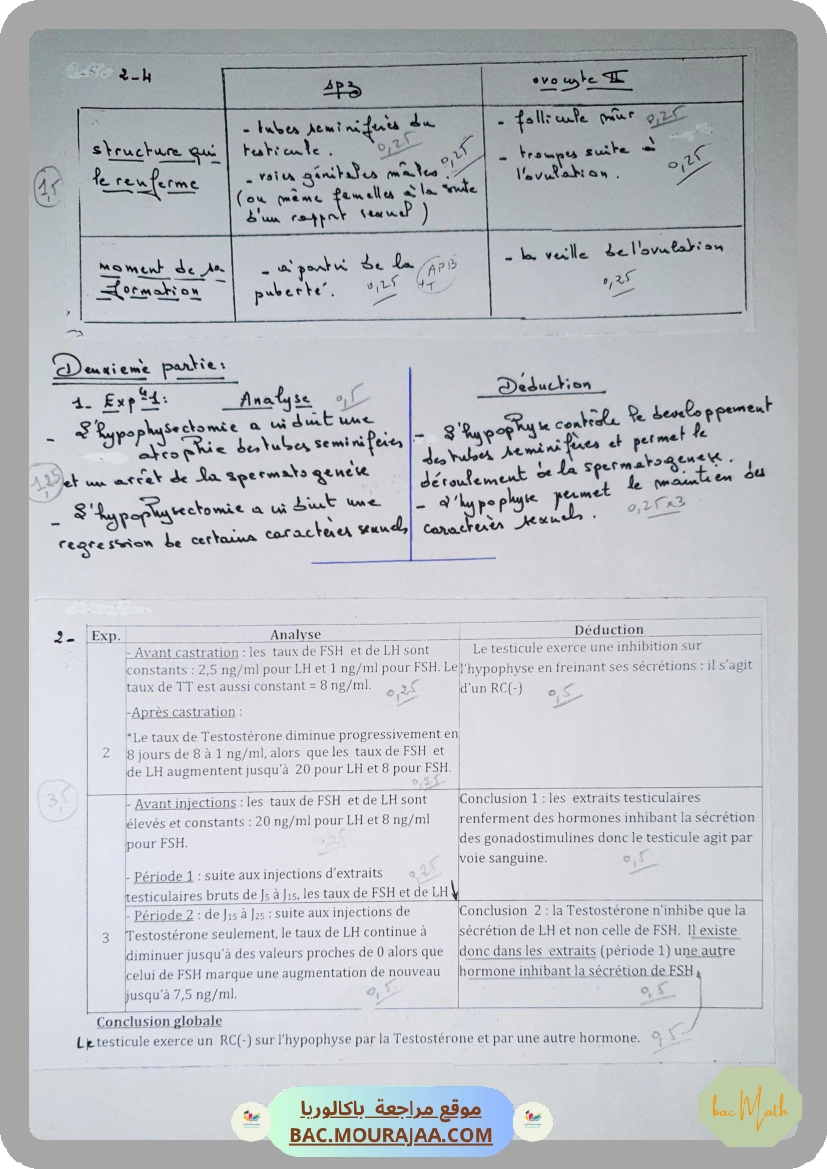 2-4
spz
ovocyte II
structure qui
le renferme
- tubes seminifères du
testicule. 0,25
- voies génitales mâles. 0,25
(ou même femelles à la suite
d'un rapport sexuel)
- follicule mûr 0,25
- trompes suite à
l'ovulation. 0,25
1,5
moment de sa
formation
- à partir de la
puberté. 0,25
- la veille de l'ovulation
0,25
Deuxième partie:
1- Exp 1: Analyse 0,5
- L'hypophysectomie a induit une
atrophie des tubes seminifères
et un arrêt de la spermatogenèse
- L'hypophysectomie a induit une
regression de certains caractères sexuels
1,25
Déduction
- L'hypophyse contrôle le developpement
des tubes seminifères et permet le
déroulement de la spermatogenèse.
- L'hypophyse permet le maintien des
caractères sexuels. 0,25x3
2-
Exp. Analyse Déduction
2
- Avant castration : les taux de FSH et de LH sont
constants : 2,5 ng/ml pour LH et 1 ng/ml pour FSH. Le
taux de TT est aussi constant = 8 ng/ml. 0,25
-Après castration :
*Le taux de Testostérone diminue progressivement en
8 jours de 8 à 1 ng/ml, alors que les taux de FSH et
de LH augmentent jusqu'à 20 pour LH et 8 pour FSH.
0,25
Le testicule exerce une inhibition sur
l'hypophyse en freinant ses sécrétions : il s'agit
d'un RC(-) 0,5
3,5
3
- Avant injections : les taux de FSH et de LH sont
élevés et constants : 20 ng/ml pour LH et 8 ng/ml
pour FSH.
- Période 1 : suite aux injections d'extraits 0,25
testiculaires bruts de J5 à J15, les taux de FSH et de LH ↓
Conclusion 1 : les extraits testiculaires
renferment des hormones inhibant la sécrétion
des gonadostimulines donc le testicule agit par
voie sanguine. 0,5
- Période 2 : de J15 à J25 : suite aux injections de
Testostérone seulement, le taux de LH continue à
diminuer jusqu'à des valeurs proches de 0 alors que
celui de FSH marque une augmentation de nouveau
jusqu'à 7,5 ng/ml. 0,5
Conclusion 2 : la Testostérone n'inhibe que la
sécrétion de LH et non celle de FSH. Il existe
donc dans les extraits (période 1) une autre
hormone inhibant la sécrétion de FSH.
0,5
Conclusion globale
Le testicule exerce un RC(-) sur l'hypophyse par la Testostérone et par une autre hormone. 0,5
موقع مراجعة باكالوريا
BAC.MOURAJAA.COM
bac Math